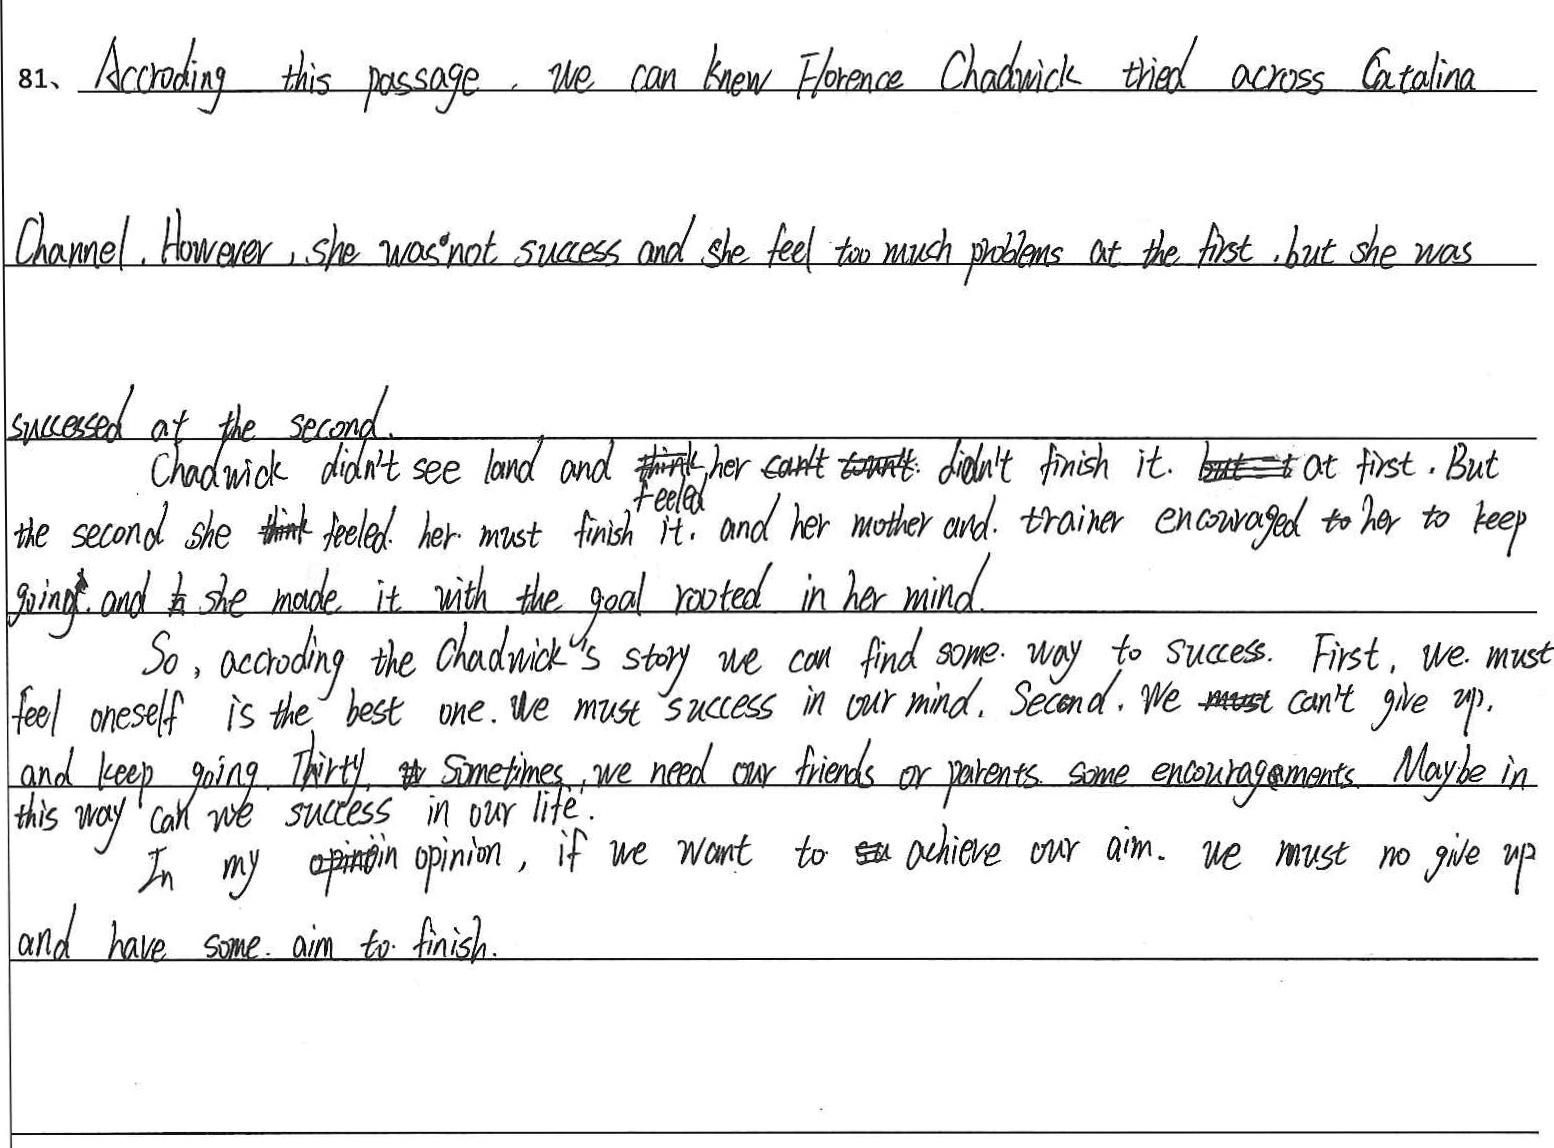 81、 Accroding this passage, we can knew Florence Chadwick tried across Catalina
Channel. However, she was not success and she feel too much problems at the first. but she was
successed at the second.
Chadwick didn't see land and feeled her didn't finish it. at first. But
the second she feeled. her must finish it. and her mother and. trainer encouraged her to keep
going. and she made it with the goal rooted in her mind.
So, accroding the Chadwick's story we can find some way to success. First, we must
feel oneself is the best one. We must success in our mind. Second. We can't give up.
and keep going. Thirty, Sometimes, we need our friends or parents some encouragements. Maybe in
this way can we success in our life.
In my opinion, if we want to achieve our aim. we must no give up
and have some aim to finish.